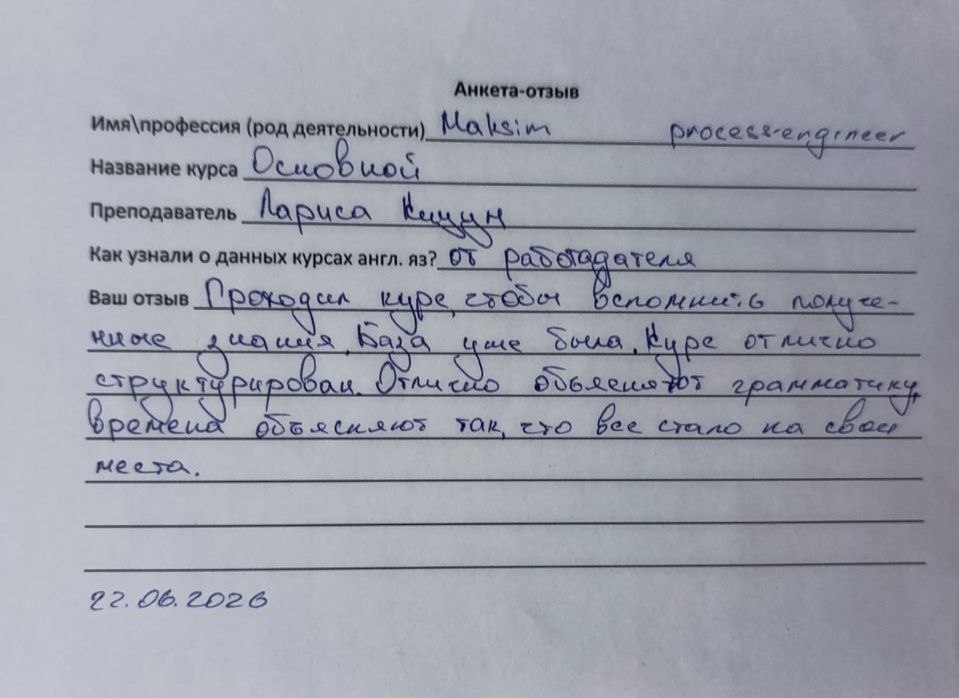 Анкета-отзыв
Имя\профессия (род деятельности) Maksim process-engineer
Название курса Основной
Преподаватель Лариса Кицун
Как узнали о данных курсах англ. яз? от работадателя
Ваш отзыв Проходил курс, чтобы вспомнить получе-
нные знания. База уже была. Курс отлично
структурирован. Отлично объясняют грамматику,
времена объясняют так, что все стало на свои
места.
22.06.2026